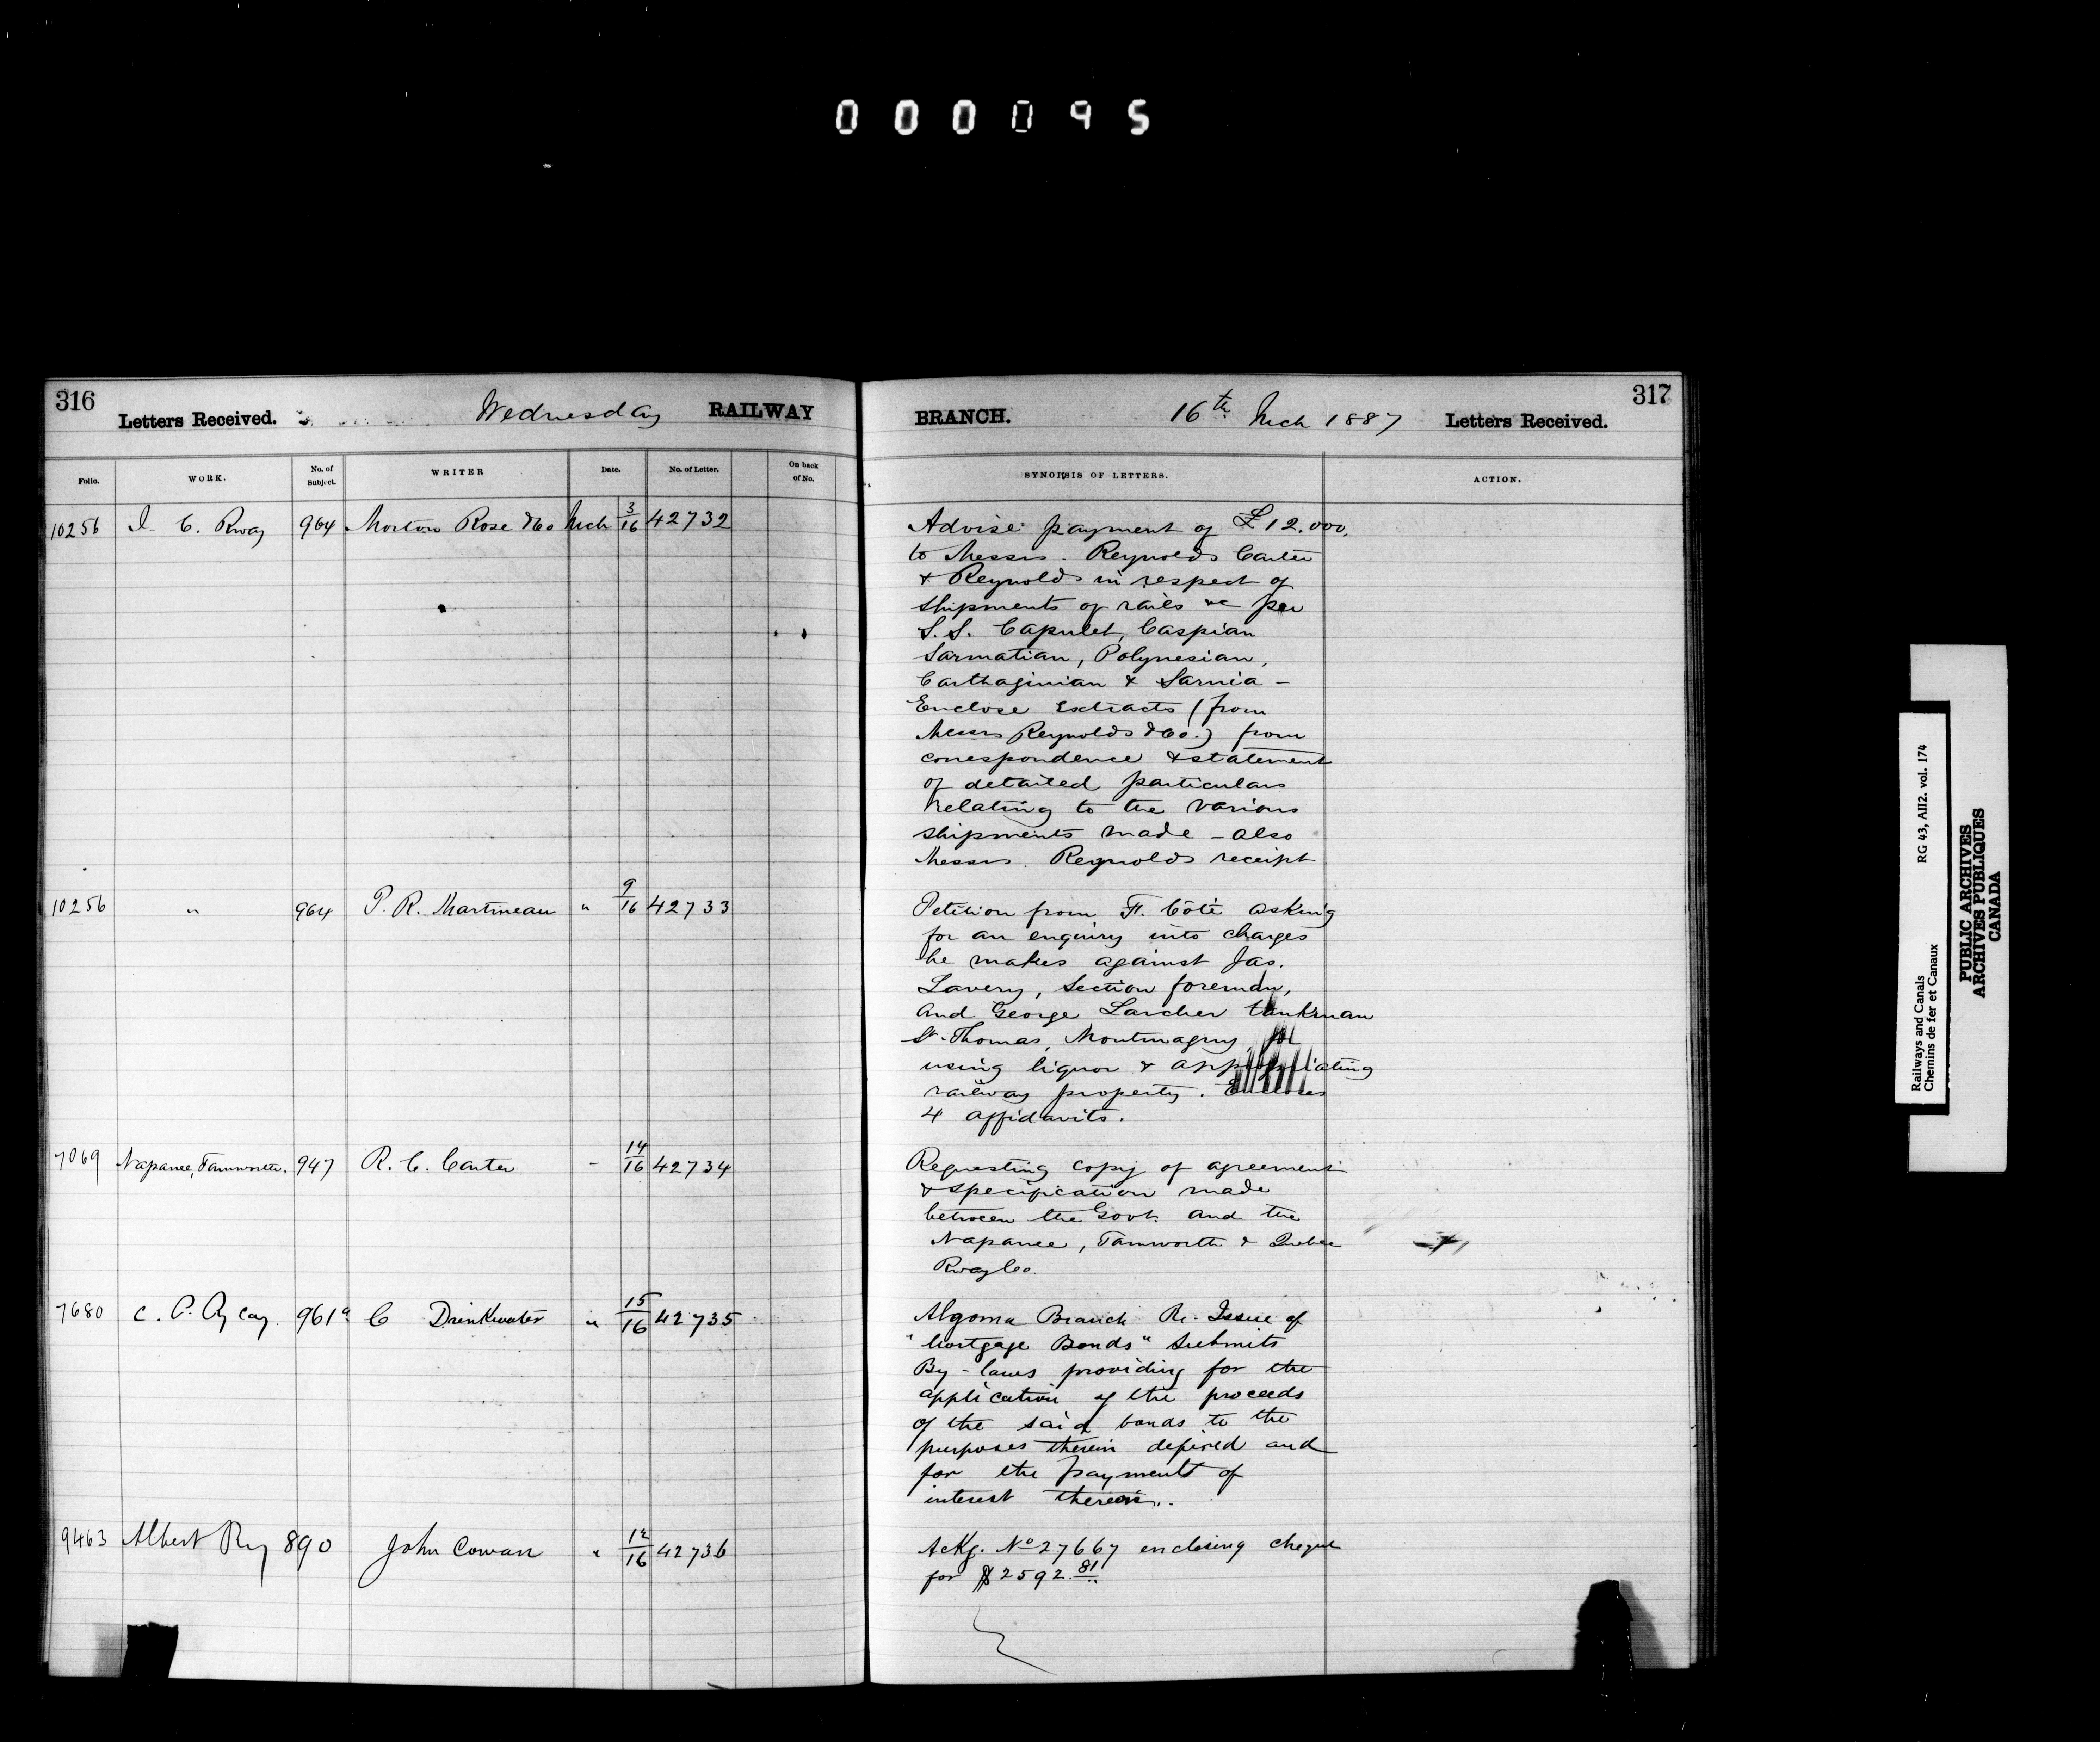 000095
316
Letters Received.
Wednesday
RAILWAY
BRANCH.
16th Mch 1887
Letters Received.
317
Folio.
WORK.
No. of Subject.
WRITER
Date.
No. of Letter.
On back of No.
SYNOPSIS OF LETTERS.
ACTION.
10256 I. C. Rway 964 Morton Rose & Co Mch 3/16 42732
Advise payment of £12.000.
to Messrs. Reynolds Carter
& Reynolds in respect of
shipments of rails &c per
S.S. Capulet, Caspian
Sarmatian, Polynesian,
Carthaginian & Sarnia -
Enclose extracts (from
Messrs Reynolds & Co.) from
correspondence & statement
of detailed particulars
relating to the various
shipments made - also
Messrs. Reynolds receipt
10256 " 964 P. R. Martineau " 9/16 42733
Petition from F. Côté asking
for an enquiry into charges
he makes against Jas.
Lavery, Section foreman,
and George Larcher tankman
St. Thomas, Montmagny, for
using liquor & appropriating
railway property. Encloses
4 affidavits.
7069 Napanee, Tamworth. 947 R. C. Carter - 14/16 42734
Requesting copy of agreement
& specification made
between the Govt. and the
Napanee, Tamworth & Quebec
Rway Co.
7680 C. P. Ry Coy. 961a C Drinkwater " 15/16 42735
Algoma Branch Re- Issue of
"Mortgage Bonds" Submits
By-laws providing for the
application of the proceeds
of the said bonds to the
purposes therein defined and
for the payment of
interest thereon.
9463 Albert Ry 890 John Cowan " 12/16 42736
Ackg. No 27667 enclosing cheque
for $2592.81
Railways and Canals
Chemins de fer et Canaux
RG 43, AII2. vol. 174
PUBLIC ARCHIVES
ARCHIVES PUBLIQUES
CANADA